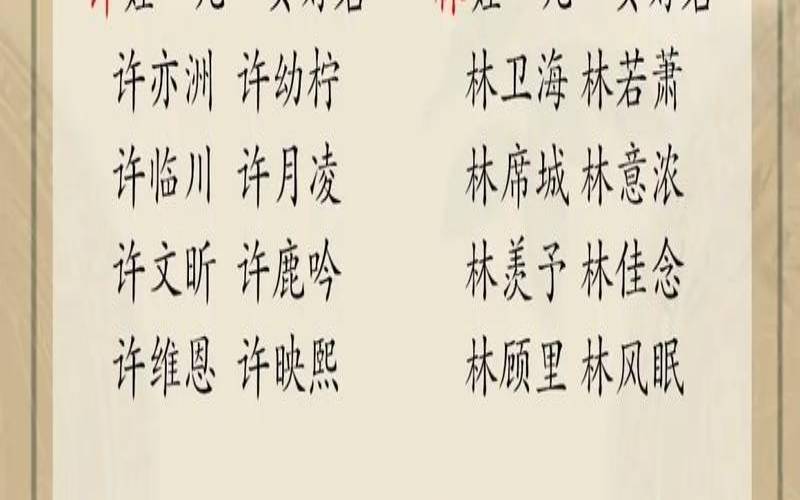 许亦洲 许幼柠
许临川 许月凌
许文昕 许鹿吟
许维恩 许映熙
林卫海 林若萧
林席城 林意浓
林羡予 林佳念
林顾里 林风眠